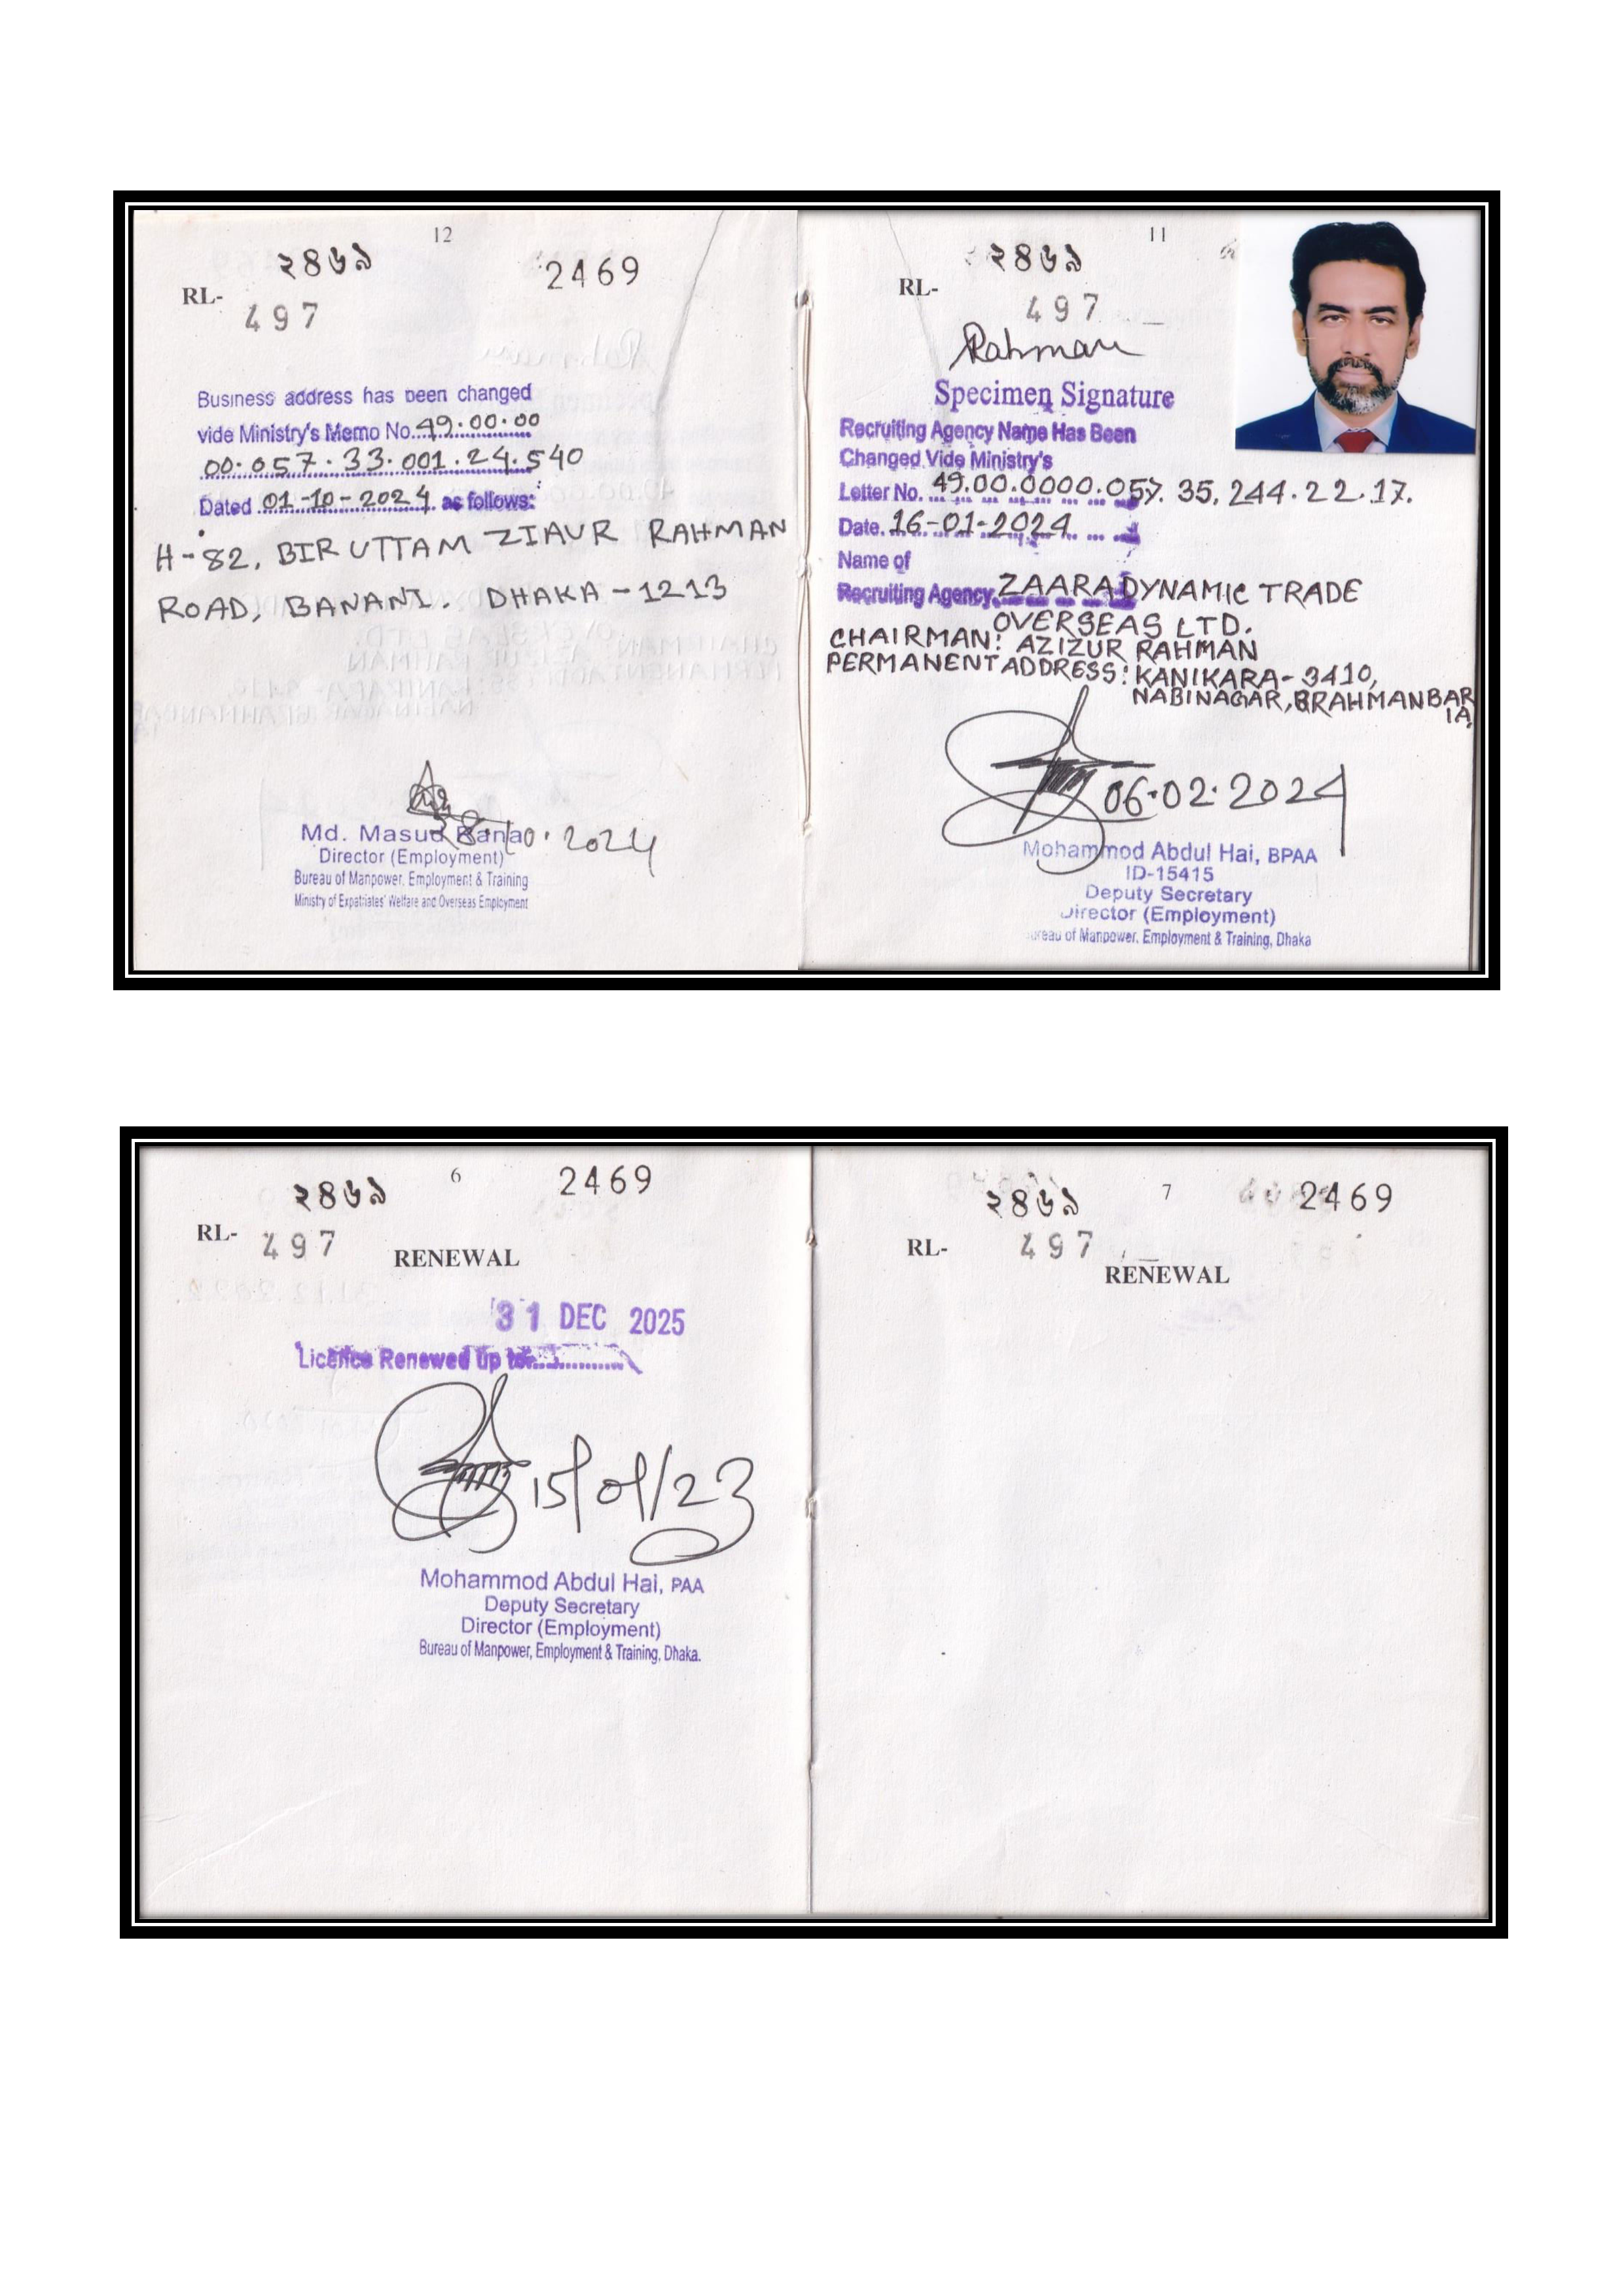 12
২৪৬৯ 2469
RL-
497
Business address has been changed
vide Ministry's Memo No. 49.00.00
00.057.33.001.24.540
Dated 01-10-2024 as follows:
H-82, BIR UTTAM ZIAUR RAHMAN
ROAD, BANANI. DHAKA-1213
28.10.2024
Md. Masud Rana
Director (Employment)
Bureau of Manpower, Employment & Training
Ministry of Expatriates' Welfare and Overseas Employment
11
২৪৬৯
RL-
497
Rahman
Specimen Signature
Recruiting Agency Name Has Been
Changed Vide Ministry's
Letter No. 49.00.0000.057.35.244.22.17.
Date. 16-01-2024
Name of
Recruiting Agency ZAARA DYNAMIC TRADE
OVERSEAS LTD.
CHAIRMAN: AZIZUR RAHMAN
PERMANENT ADDRESS: KANIKARA-3410,
NABINAGAR, BRAHMANBAR
IA,
06.02.2024
Mohammod Abdul Hai, BPAA
ID-15415
Deputy Secretary
Director (Employment)
Bureau of Manpower, Employment & Training, Dhaka
6
২৪৬৯ 2469
RL-
497
RENEWAL
31 DEC 2025
Licence Renewed up to...............
15/01/23
Mohammod Abdul Hai, PAA
Deputy Secretary
Director (Employment)
Bureau of Manpower, Employment & Training, Dhaka.
7
২৪৬৯ 2469
RL-
497
RENEWAL